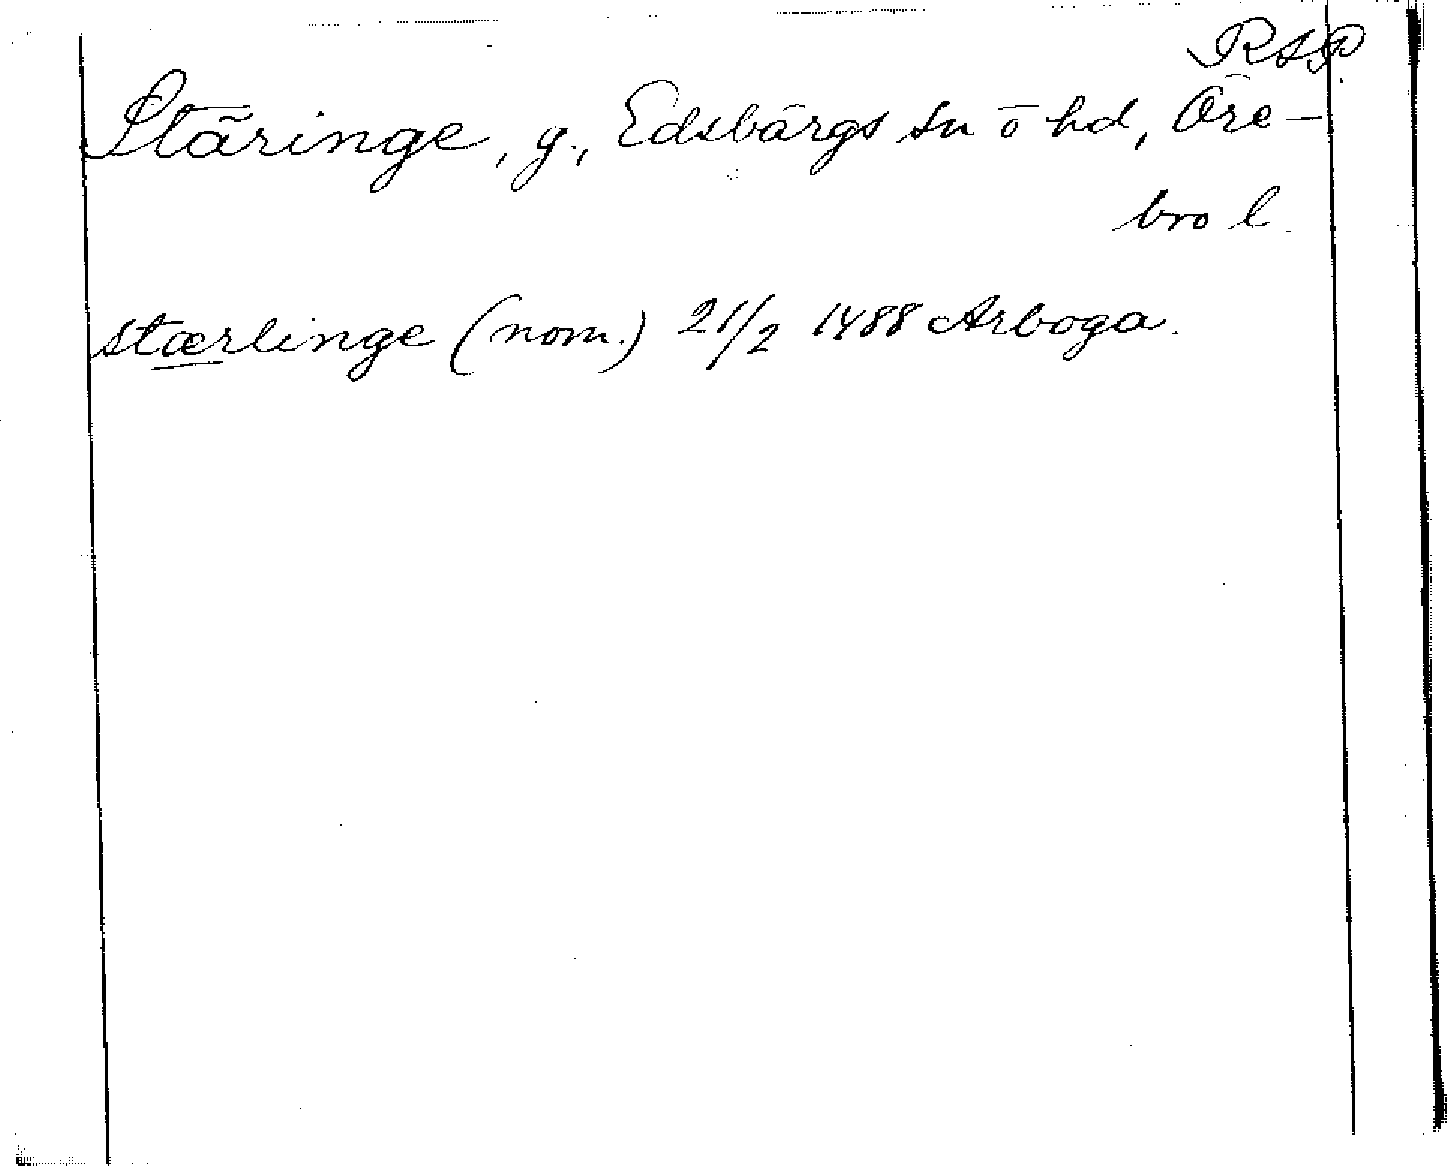 RAP.
Stäringe, g., Edsbärgs sn ö hd, Öre-
bro l.
stærlinge (nom.) 21/2 1488 Arboga.